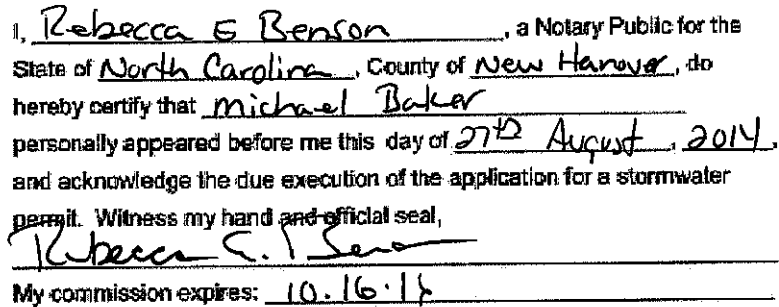 I, Rebecca E Benson, a Notary Public for the
State of North Carolina, County of New Hanover, do
hereby certify that Michael Baker
personally appeared before me this day of 27th August, 2014,
and acknowledge the due execution of the application for a stormwater
permit. Witness my hand and official seal,
Rebecca E. Benson
My commission expires: